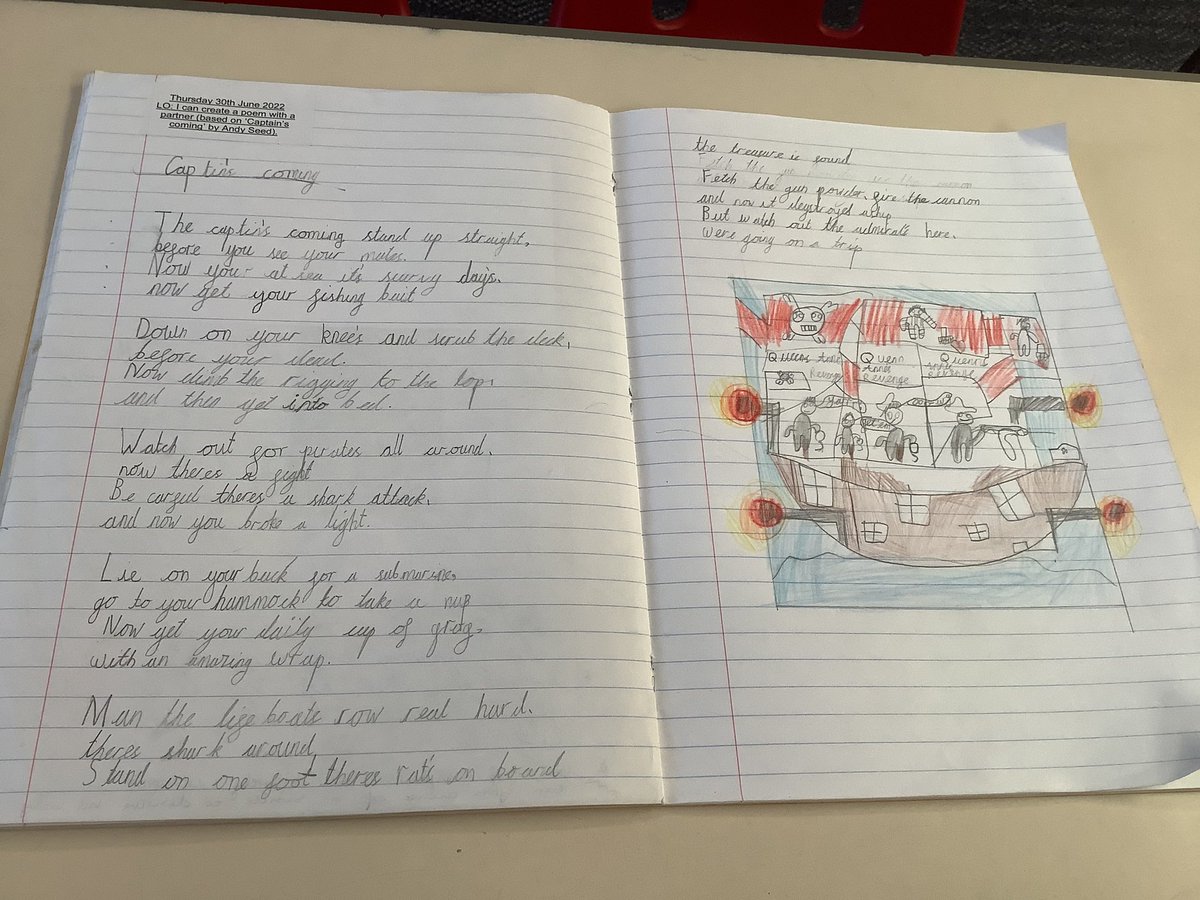 Thursday 30th June 2022
LO: I can create a poem with a
partner (based on 'Captain's
coming' by Andy Seed).
Captin's coming
The captin's coming stand up straight,
before you see your mates.
Now your at sea it's scurvy days,
now get your fishing bait
Down on your knee's and scrub the deck,
before your dead.
Now climb the rigging to the top,
and then get into bed.
Watch out for pirates all around,
now theres a fight
Be carful theres a shark attack,
and now you broke a light.
Lie on your back for a submarine,
go to your hammock to take a nap
Now get your daily cup of grog,
with an amazing wrap.
Man the life boats row real hard,
theres shark around,
Stand on one foot theres rats on board
the treasure is found
Fetch the gun powder, fire the cannon
and now it destroyed a ship
But watch out the admirals here,
were going on a trip
Queens Anne Revenge
Quenn Annes Revenge
Quenn's Anne Revenge